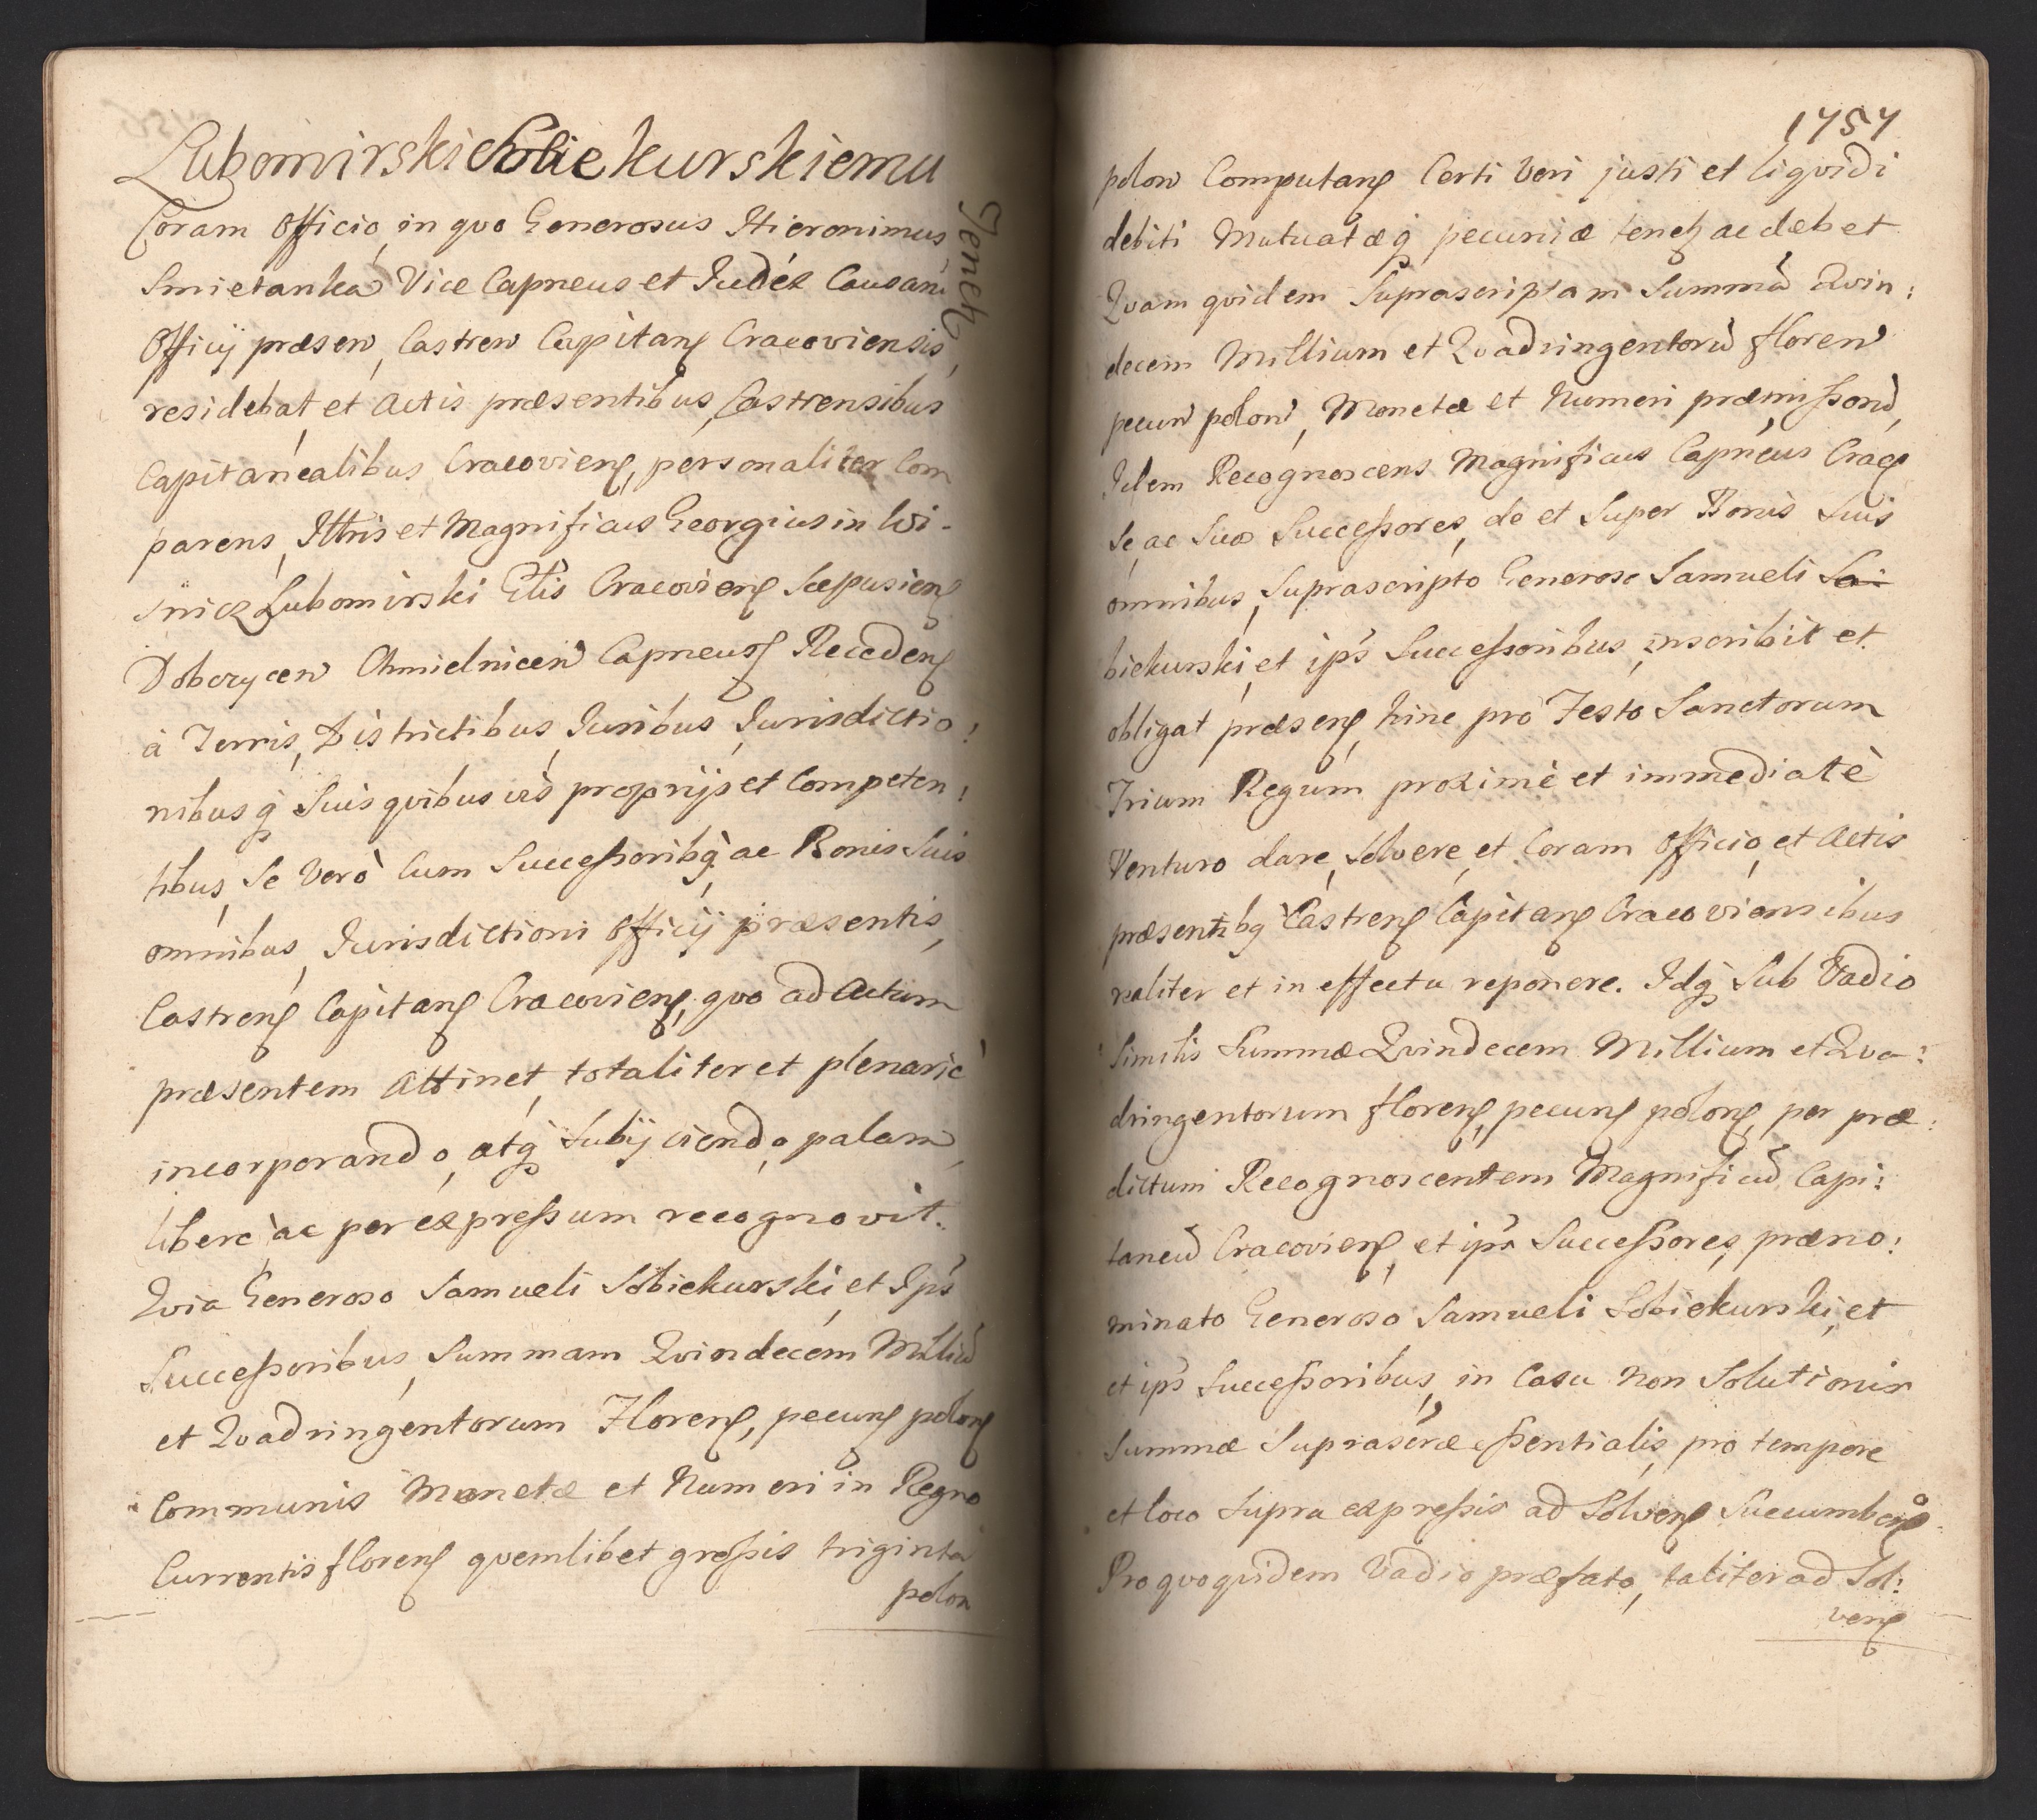 Lubomirski Sobiekurskiemu
Coram Officio, in quo Generosus Hieronimus
Smietanka Vice Capneus et Judex Causarũ
Officÿ præsen, Castren Capitanꝭ Cracoviensis,
residebat, et Actis præsentibus, Castrensibus
Capitanealibus Cracovienꝭ, personaliter Com
parens, Illtris et Magnificus Georgius in Wi-
snicz Lubomirski Gtlis Cracovienꝭ Scepusienꝭ
Dobczycen Chmielnicen Capneusꝭ Recedenꝭ
à Terris, Districtibus, Juribus, Jurisdictio:
nibusq̃ Suis quibusvis proprijs et Competen:
tibus, Se Verò Cum Successoribq̃, ac Bonis Suis
omnibus, Jurisdictioni Officÿ præsentis,
Castrenꝭ Capitanꝭ Cracovienꝭ, quo ad Actum
præsentem Attinet, totaliter et plenariè
incorporando, atq̃ Subijciendo, palam,
liberè ac per expressum recognovit.
Quia Generoso Samueli Sobiekurski, et Ips̃
Successoribus, Summam Quindecem Milliũ
et Quadringentorum Florenꝭ, pecunꝭ polonꝭ
Communis Monetæ et Numeri in Regno
Currentis florenꝭ quemlibet grossis triginta
polon
Tenetꝫ
1757
polon Computanꝭ Certi Veri justi et liqvidi
debiti Mutuatæq̃ pecuniæ tenetꝫ ac debet
Quam quidem Suprascriptam Summã Quin:
decem Millium et Quadringentorũ floren
pecun polon, Monetæ et Numeri præmissorũ,
Idem Recognoscens Magnificus Capneus Cracꝭ
Se, ac Suos Successores, de et Super Bonis Suis
omnibus, Suprascripto Generoso Samueli So:
biekurski, et ips̃ Successoribus, inscribit et
obligat præsenꝭ, hinc pro Festo Sanctorum
Trium Regum proximè et immediatè
Venturo dare, Solvere, et Coram Officio, et Actis
præsentibq Castrenꝭ Capitanꝭ Cracoviensibus
realiter et in effectu reponere. Idq̃ Sub Vadio
Similis Summæ Quindecem Millium et Qua:
dringentorum florenꝭ, pecunꝭ polonꝭ, per præ:
dictum Recognoscentem Magnificũ Capi:
taneũ Cracovienꝭ, et ips̃ Successores, præno:
minato Generoso Samueli Sobiekurski, et
et ips̃ Successoribus, in Casu non Solutionis
Summæ Suprascræ essentialis, pro tempore
et loco Supra expressis ad Solvenꝭ Succumbenꝭ
Pro quo quidem Vadio præfato, taliter ad Sol:
venꝭ